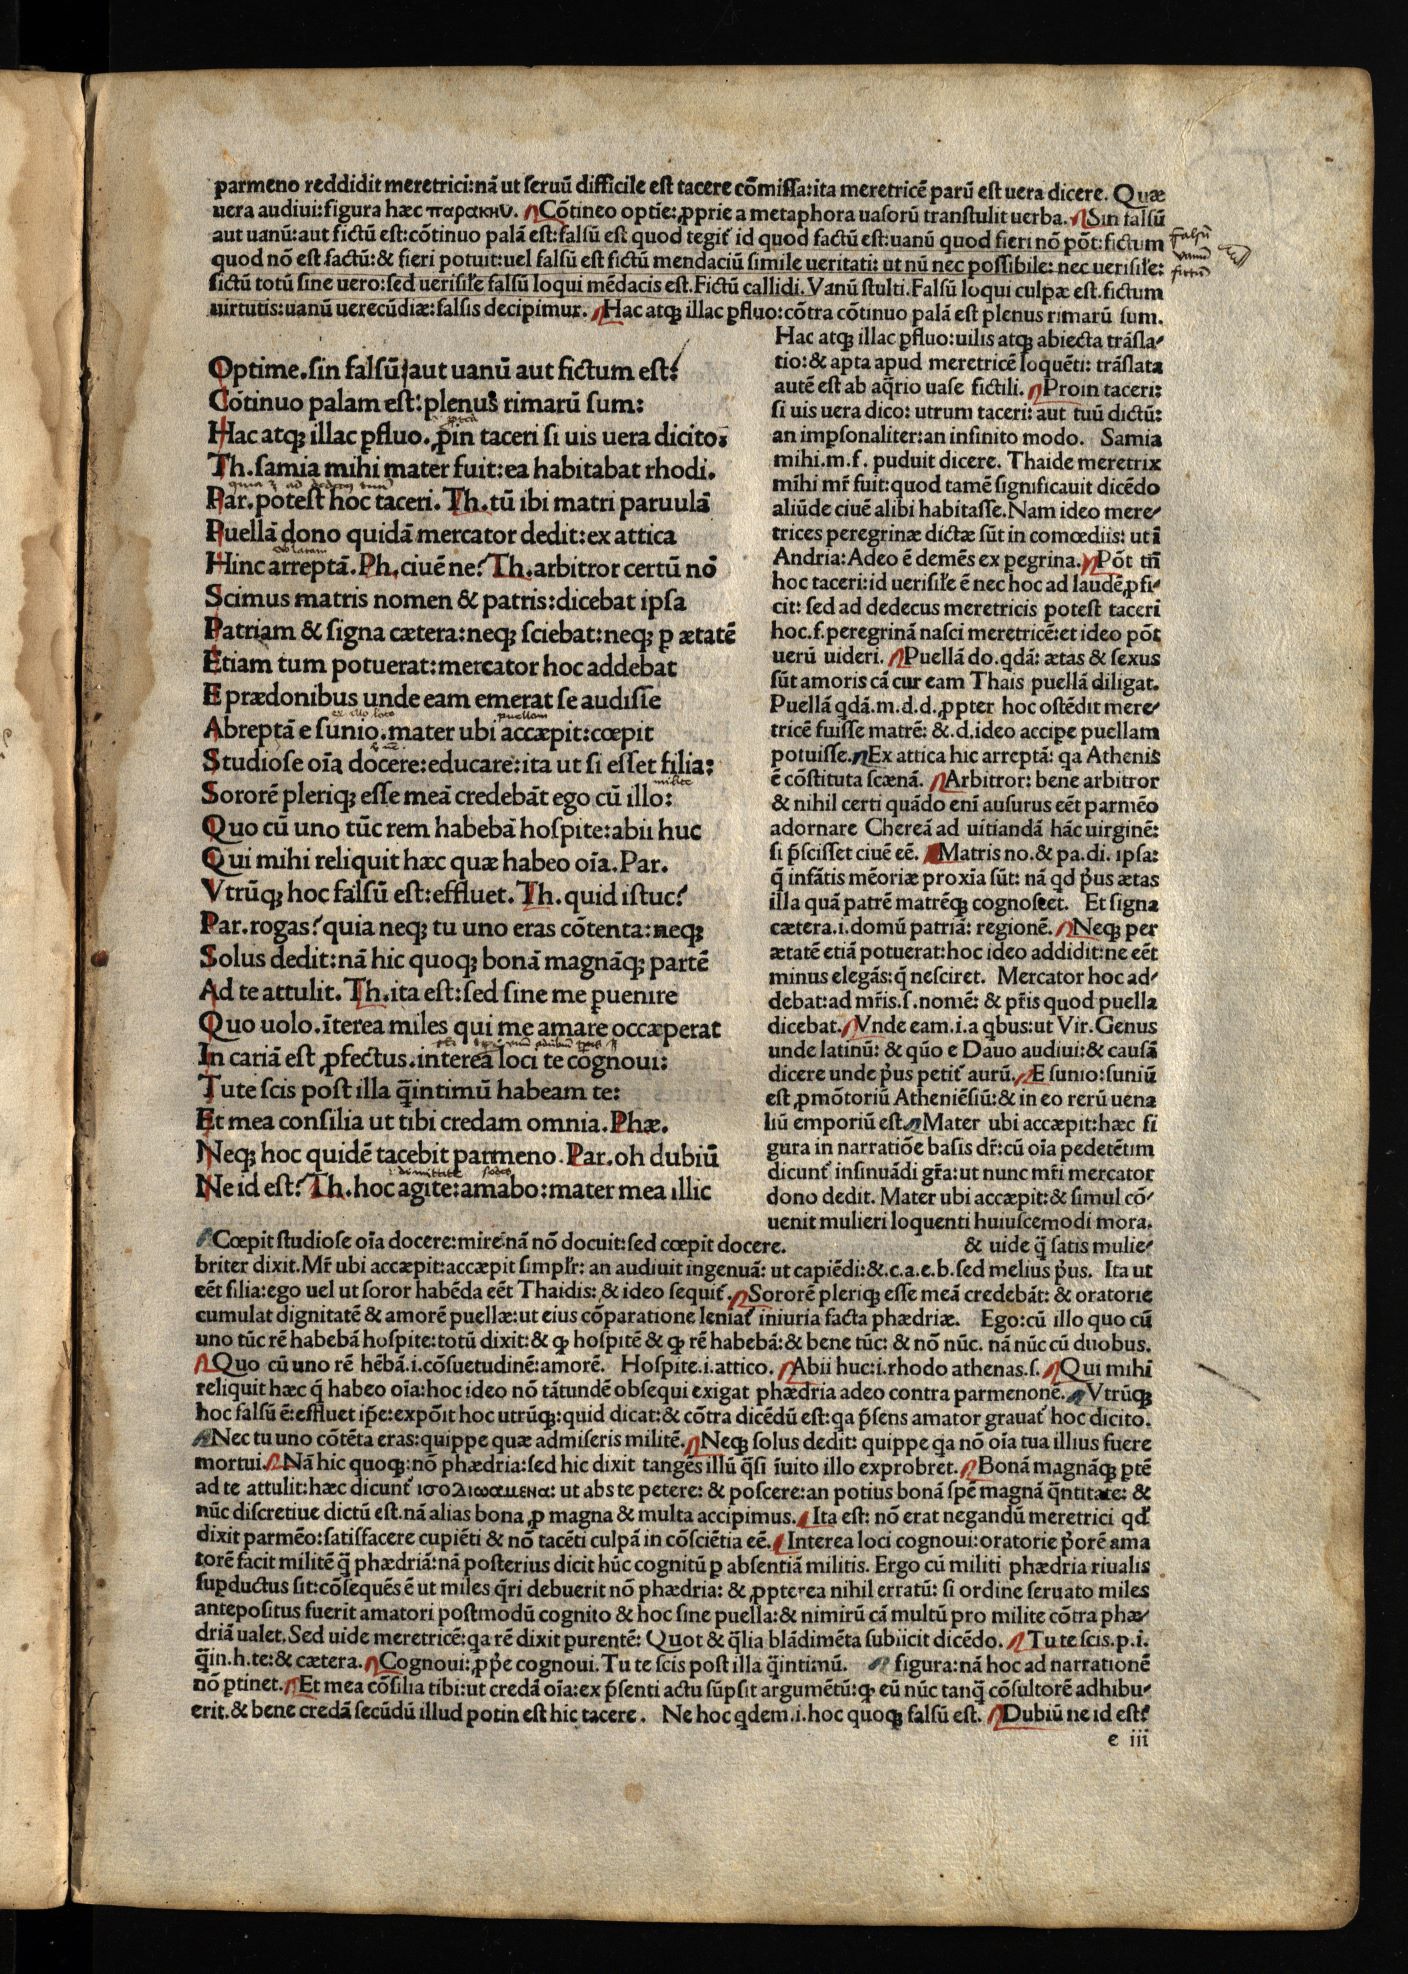 parmeno reddidit meretrici:nã ut seruũ difficile est tacere cõmissa:ita meretricẽ parũ est uera dicere. Quæ
uera audiui:figura hæc παρακην. Cõtineo optie: ꝓprie a metaphora uasorũ transtulit uerba. Sin falsũ
aut uanũ:aut fictũ est:cõtinuo palã est:falsũ est quod tegit᷑ id quod factũ est:uanũ quod fieri nõ põt:fictum
quod nõ est factũ:& fieri potuit:uel falsũ est fictũ mendaciũ simile ueritati: ut nũ nec possibile: nec uerisiłe:
fictũ totũ sine uero:sed uerisiłe falsũ loqui mẽdacis est.Fictũ callidi.Vanũ stulti.Falsũ loqui culpæ est.fictum
uirtutis:uanũ uerecũdiæ:falsis decipimur. Hac atqꝫ illac ꝑfluo:cõtra cõtinuo palã est plenus rimarũ sum.
falsũ
uanũ
fictũ
Optime.sin falsũ aut uanũ aut fictum est:
Cõtinuo palam est:plenus rimarũ sum:
Hac atqꝫ illac ꝑfluo.ꝓin taceri si uis uera dicito:
Th.samia mihi mater fuit:ea habitabat rhodi.
Par.potest hoc taceri.Th.tũ ibi matri paruulã
Puellã dono quidã mercator dedit:ex attica
Hinc arreptã.Ph.ciuẽ ne? Th.arbitror certũ nõ
Scimus matris nomen & patris:dicebat ipsa
Patriam & signa cætera:neqꝫ sciebat:neqꝫ ꝑ ætatẽ
Etiam tum potuerat:mercator hoc addebat
E prædonibus unde eam emerat se audisse
ex illo loco puellam
Abreptã e sunio.mater ubi accæpit:cœpit
Studiose oĩa docere:educare:ita ut si esset filia:
milite
Sororẽ pleriqꝫ esse meã credebãt ego cũ illo:
Quo cũ uno tũc rem habebã hospite:abii huc
Qui mihi reliquit hæc quæ habeo oĩa.Par.
Vtrũqꝫ hoc falsũ est:effluet.Th.quid istuc?
Par.rogas? quia neqꝫ tu uno eras cõtenta:neqꝫ
Solus dedit:nã hic quoqꝫ bonã magnãqꝫ partẽ
Ad te attulit.Th.ita est:sed sine me ꝑuenire
Quo uolo.ĩterea miles qui me amare occæperat
In cariã est ꝓfectus.interea loci te cognoui:
Tute scis post illa q̃intimũ habeam te:
Et mea consilia ut tibi credam omnia.Phæ.
Neqꝫ hoc quidẽ tacebit parmeno.Par.oh dubiũ
Ne id est? Th.hoc agite:amabo:mater mea illic
Hac atqꝫ illac ꝑfluo:uilis atqꝫ abiecta trãsla-
tio:& apta apud meretricẽ loquẽti: trãslata
autẽ est ab aq̃rio uase fictili. Proin taceri:
si uis uera dico: utrum taceri: aut tuũ dictũ:
an imꝑsonaliter:an infinito modo. Samia
mihi.m.f. puduit dicere. Thaide meretrix
mihi mr̃ fuit:quod tamẽ significauit dicẽdo
aliũde ciuẽ alibi habitasse.Nam ideo mere-
trices peregrinæ dictæ sũt in comœdiis: ut ĩ
Andria:Adeo ẽ demẽs ex pegrina. Põt tñ
hoc taceri:id uerisiłe ẽ nec hoc ad laudẽ ꝓfi-
cit: sed ad dedecus meretricis potest taceri
hoc.f.peregrinã nasci meretricẽ:et ideo põt
uerũ uideri. Puellã do.qdã: ætas & sexus
sũt amoris cã cur eam Thais puellã diligat.
Puellã qdã.m.d.d.ꝓpter hoc ostẽdit mere-
tricẽ fuisse matrẽ: &.d.ideo accipe puellam
potuisse. Ex attica hic arreptã: qa Athenis
ẽ cõstituta scænã. Arbitror: bene arbitror
& nihil certi quãdo enĩ ausurus eẽt parmẽo
adornare Chereã ad uitiandã hãc uirginẽ:
si p̃scisset ciuẽ eẽ. Matris no.& pa.di. ipsa:
q̃ infãtis mẽoriæ proxĩa sũt: nã qd p̃us ætas
illa quã patrẽ matrẽqꝫ cognoscet. Et signa
cætera.i.domũ patriã: regionẽ. Neqꝫ per
ætatẽ etiã potuerat:hoc ideo addidit:ne eẽt
minus elegãs:q̃ nesciret. Mercator hoc ad-
debat:ad mr̃is.s.nomẽ: & pr̃is quod puella
dicebat. Vnde eam.i.a qbus:ut Vir.Genus
unde latinũ: & qũo e Dauo audiui:& causã
dicere unde p̃us petit᷑ aurũ. E sunio:suniũ
est ꝓmõtoriũ Atheniẽsiũ:& in eo rerũ uena
liũ emporiũ est. Mater ubi accæpit:hæc fi
gura in narratiõe basis dr̃:cũ oĩa pedetẽtim
dicunt᷑ insinuãdi gr̃a:ut nunc mr̃i mercator
dono dedit. Mater ubi accæpit:& simul cõ-
uenit mulieri loquenti huiuscemodi mora.
Cœpit studiose oĩa docere:mire:nã nõ docuit:sed cœpit docere. & uide q̃ satis mulie-
briter dixit.Mr̃ ubi accæpit:accæpit simpłr: an audiuit ingenuã: ut capiẽdi:&.c.a.e.b.sed melius p̃us. Ita ut
eẽt filia:ego uel ut soror habẽda eẽt Thaidis: & ideo sequit᷑. Sororẽ pleriqꝫ esse meã credebãt: & oratorie
cumulat dignitatẽ & amorẽ puellæ:ut eius cõparatione leniat᷑ iniuria facta phædriæ. Ego:cũ illo quo cũ
uno tũc rẽ habebã hospite:totũ dixit:& ꝙ hospitẽ & ꝙ rẽ habebã:& bene tũc: & nõ nũc. nã nũc cũ duobus.
Quo cũ uno rẽ hẽbã.i.cõsuetudinẽ:amorẽ. Hospite.i.attico. Abii huc:i.rhodo athenas.s. Qui mihi
reliquit hæc q̃ habeo oĩa:hoc ideo nõ tãtundẽ obsequi exigat phædria adeo contra parmenonẽ. Vtrũqꝫ
hoc falsũ ẽ:effluet ip̃e:expõit hoc utrũqꝫ:quid dicat:& cõtra dicẽdũ est:qa p̃sens amator grauat᷑ hoc dicito.
Nec tu uno cõtẽta eras:quippe quæ admiseris militẽ. Neqꝫ solus dedit: quippe qa nõ oĩa tua illius fuere
mortui. Nã hic quoqꝫ:nõ phædria:sed hic dixit tangẽs illũ q̃si ĩuito illo exprobret. Bonã magnãqꝫ ꝑtẽ
ad te attulit:hæc dicunt᷑ ισολιωαμενα: ut abs te petere: & poscere:an potius bonã spẽ magnã q̃ntitate: &
nũc discretiue dictũ est.nã alias bona ꝓ magna & multa accipimus. Ita est: nõ erat negandũ meretrici qd
dixit parmẽo:satisfacere cupiẽti & nõ tacẽti culpã in cõsciẽtia eẽ. Interea loci cognoui:oratorie p̃orẽ ama
torẽ facit militẽ q̃ phædriã:nã posterius dicit hũc cognitũ ꝑ absentiã militis. Ergo cũ militi phædria riualis
suꝑductus sit:cõsequẽs ẽ ut miles q̃ri debuerit nõ phædria: & ꝓpterea nihil erratũ: si ordine seruato miles
antepositus fuerit amatori postmodũ cognito & hoc sine puella:& nimirũ cã multũ pro milite cõtra phæ-
driã ualet.Sed uide meretricẽ:qa rẽ dixit ꝑurentẽ: Quot & q̃lia blãdimẽta subiicit dicẽdo. Tu te scis.p.i.
q̃in.h.te:& cætera. Cognoui:ꝓp̃e cognoui.Tu te scis post illa q̃intimũ. figura:nã hoc ad narrationẽ
nõ ꝑtinet. Et mea cõsilia tibi:ut credã oĩa:ex p̃senti actu sũpsit argumẽtũ:ꝙ eũ nũc tanq̃ cõsultorẽ adhibu-
erit.& bene credã secũdũ illud potin est hic tacere. Ne hoc qdem.i.hoc quoqꝫ falsũ est. Dubiũ ne id est?
e iii